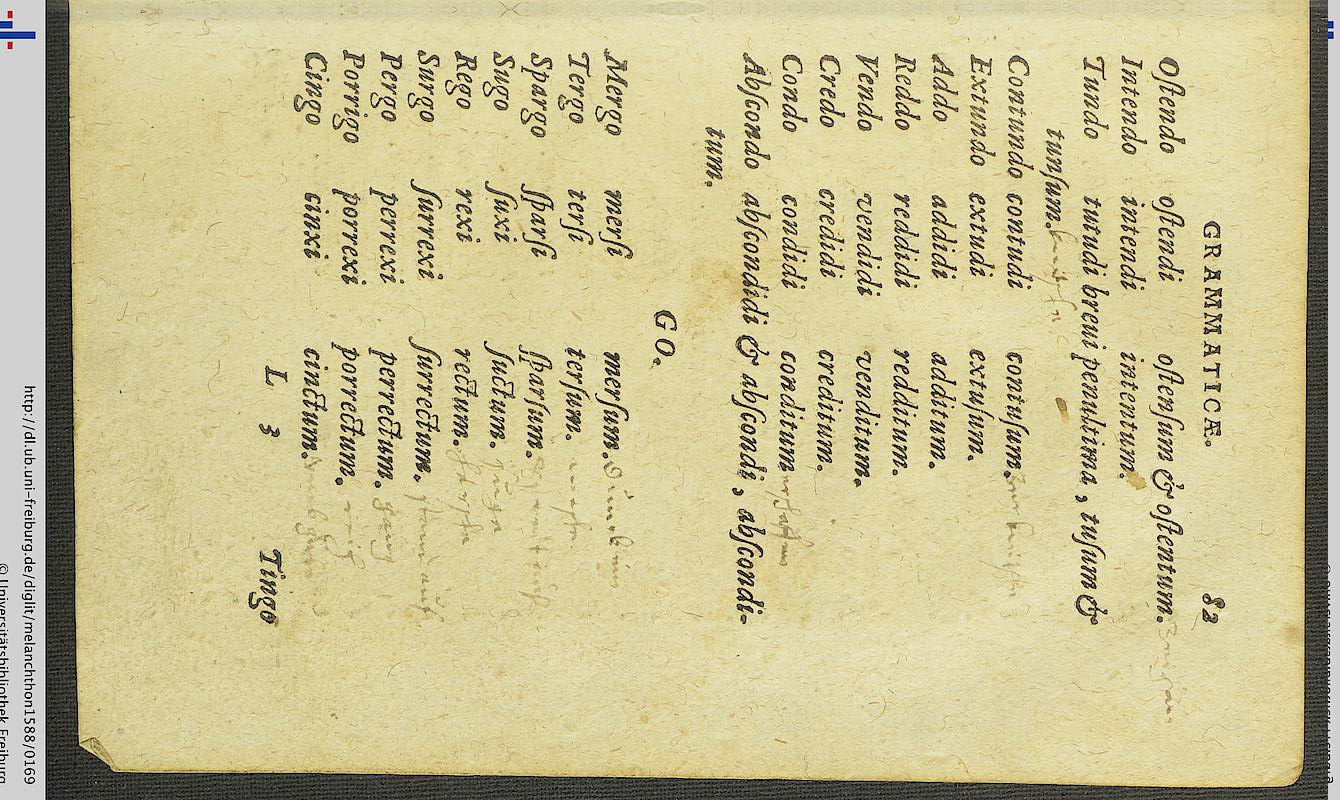 GRAMMATICÆ. 82
Oſtendo oſtendi oſtenſum & oſtentum.
Intendo intendi intentum.
Tundo tutudi breui penultima, tuſum &
tunſum.
Contundo contudi contuſum.
Extundo extudi extuſum.
Addo addidi additum.
Reddo reddidi redditum.
Vendo vendidi venditum.
Credo credidi creditum.
Condo condidi conditum.
Abſcondo abſcondidi & abſcondi, abſcondi-
tum.
GO.
Mergo merſi merſum.
Tergo terſi terſum.
Spargo ſparſi ſparſum.
Sugo ſuxi ſuctum.
Rego rexi rectum.
Surgo ſurrexi ſurrectum.
Pergo perrexi perrectum.
Porrigo porrexi porrectum.
Cingo cinxi cinctum.
L 3 Tingo
http://dl.ub.uni-freiburg.de/diglit/melanchthon1588/0169
© Universitätsbibliothek Freiburg